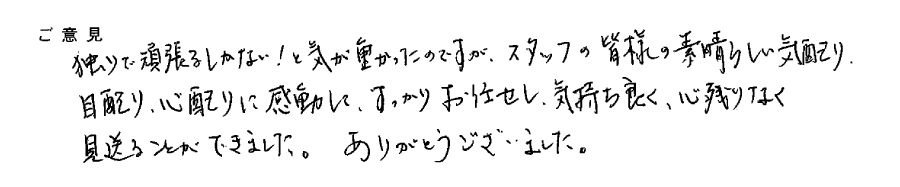 ご意見
独りで頑張るしかない！と気が重かったのですが、スタッフの皆様の素晴らしい気配り、
目配り、心配りに感動し、すっかりお任せし、気持ち良く、心残りなく
見送ることができました。 ありがとうございました。